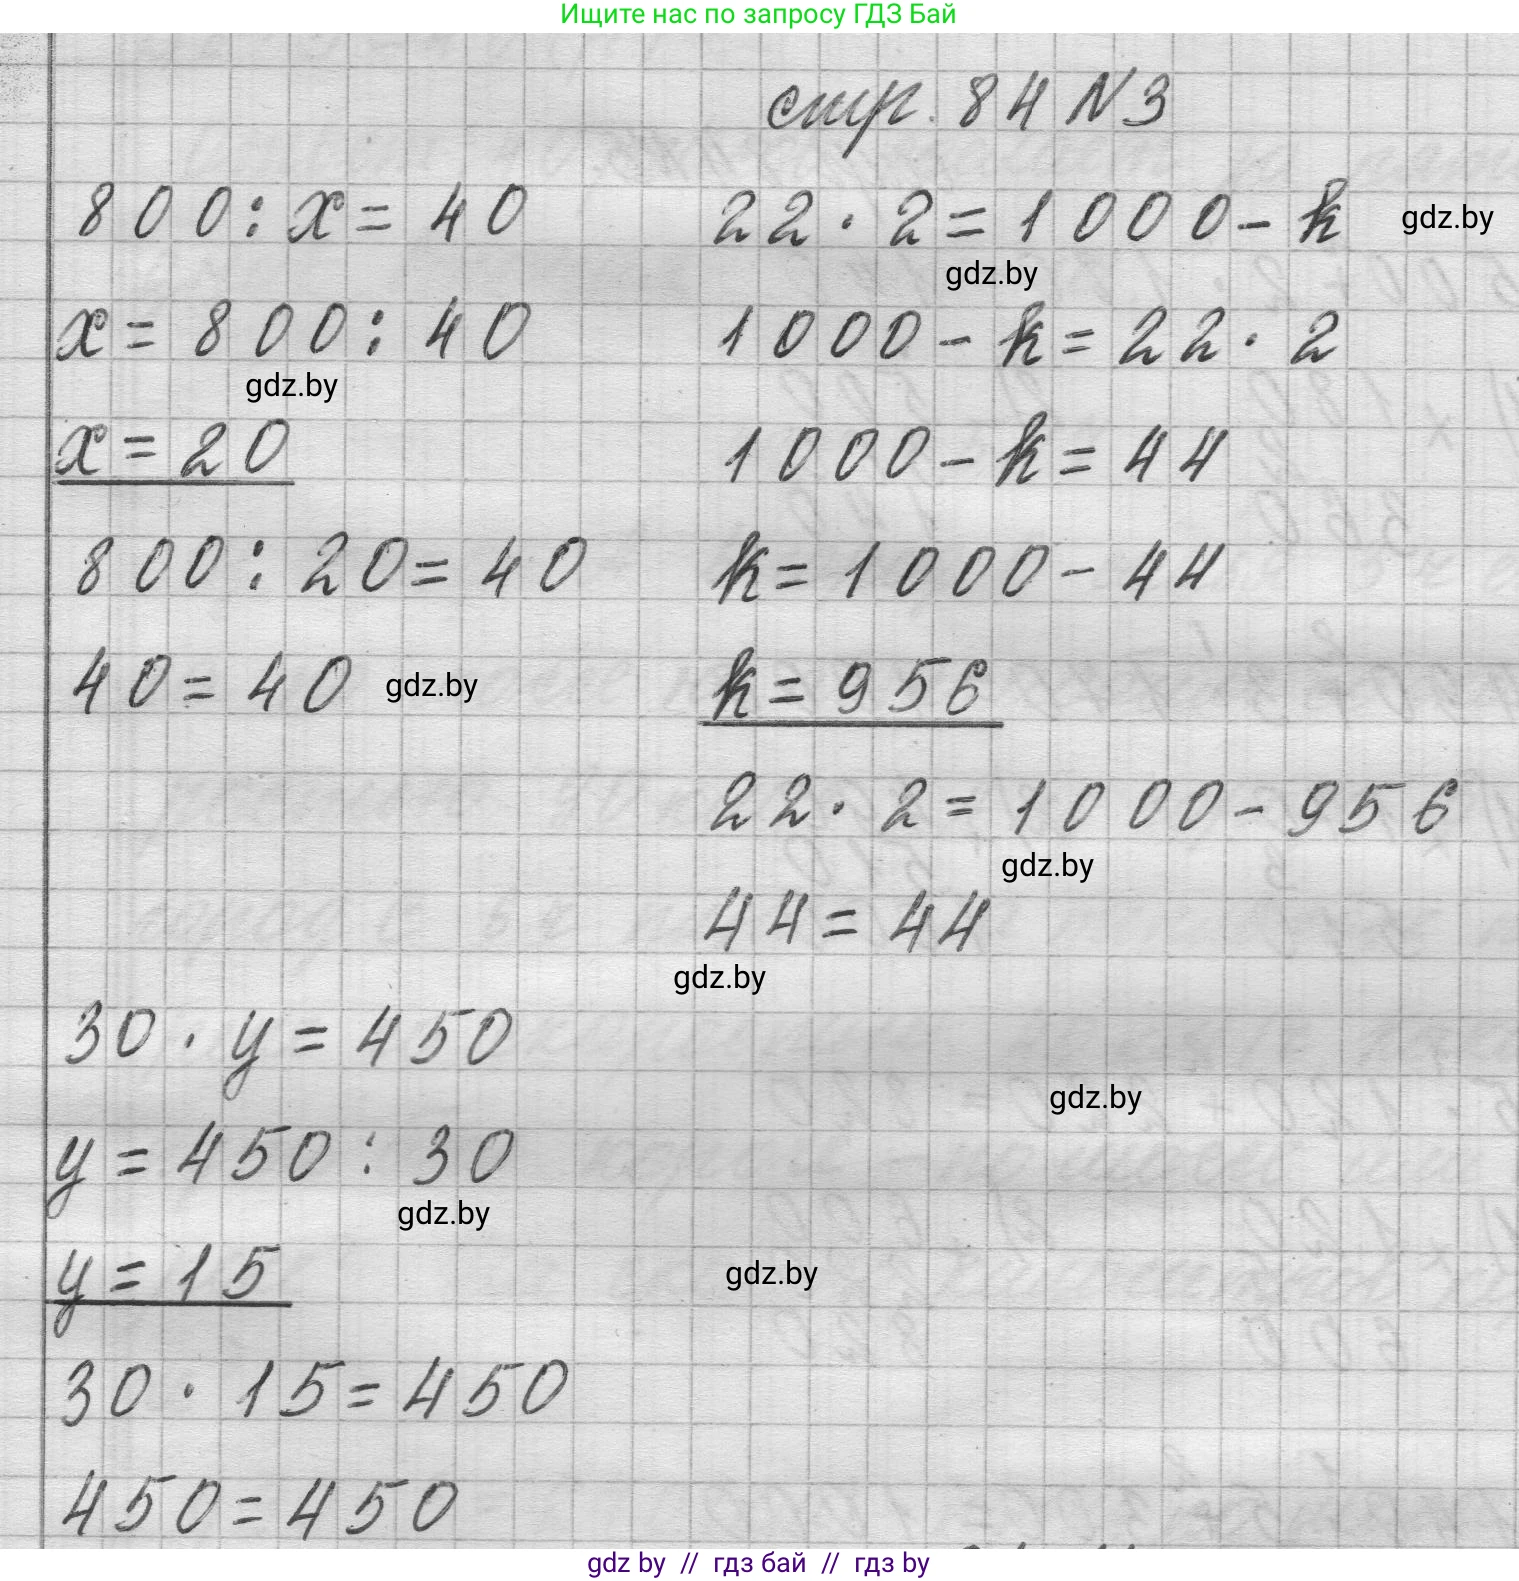 Ищите нас по запросу ГДЗ Бай
стр. 84 N 3
800 : x = 40
x = 800 : 40
gdz.by
x = 20
800 : 20 = 40
40 = 40 gdz.by
22 · 2 = 1000 - k gdz.by
gdz.by
1000 - k = 22 · 2
1000 - k = 44
k = 1000 - 44
k = 956
22 · 2 = 1000 - 956
gdz.by
44 = 44
gdz.by
30 · y = 450
gdz.by
y = 450 : 30
gdz.by
y = 15
gdz.by
30 · 15 = 450
450 = 450
gdz by // гдз бай // гдз by